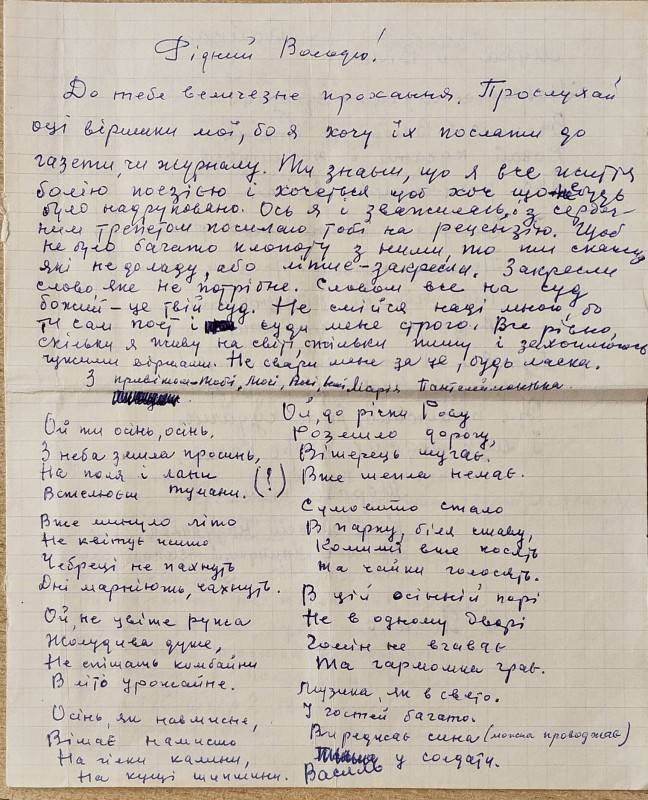 Рідний Володю!
До тебе величезне прохання. Прослухай
оці віршики мої, бо я хочу їх послати до
газети, чи журналу. Ти знаєш, що я все життя
болію поезією і хочеться щоб хоч що-небудь
було надруковано. Ось я і зважилась, із сердеч-
ним трепетом посилаю тобі на рецензію. Щоб
не було багато клопоту з ними, то ти скажеш
які недоладу, або ліпше - закресли. Закресли
слово, яке не потрібне. Словом все на суд
божий - це твій суд. Не смійся наді мною бо
ти сам поет і суди мене строго. Все рівно,
скільки я живу на світі, стільки пишу і захоплююсь
чужими віршами. Не свари мене за це, будь ласка.
З привітом - тобі, Марія Пантелеймонівна.
Ой ти осінь, осінь,
З неба змила просинь,
На поля і лани (!)
Встелюєш тумани.
Вже минуло літо
Не квітує жито
Чебреці не пахнуть
Дні марніють, чахнуть.
Ой, не цвіте ружа
Жолудива дуже,
Не спішать комбайни
В літо урожайне.
Осінь, як навмисне,
Вішає намисто
На гілки калини,
На кущі шипшини.
Ой, до річки Росу
Розвезло дорогу,
Вітерець шугає.
Вже тепла немає.
Сумовито стало
В парку, біля ставу,
Комиші вже косять
Та чайки голосять.
В цій осінній порі
Не в одному дворі
Гомін не вгаває
Та гармошка грає.
Музика, як в свято.
І гостей багато.
Виряджає сина (можна проводжає)
Василь у солдати.